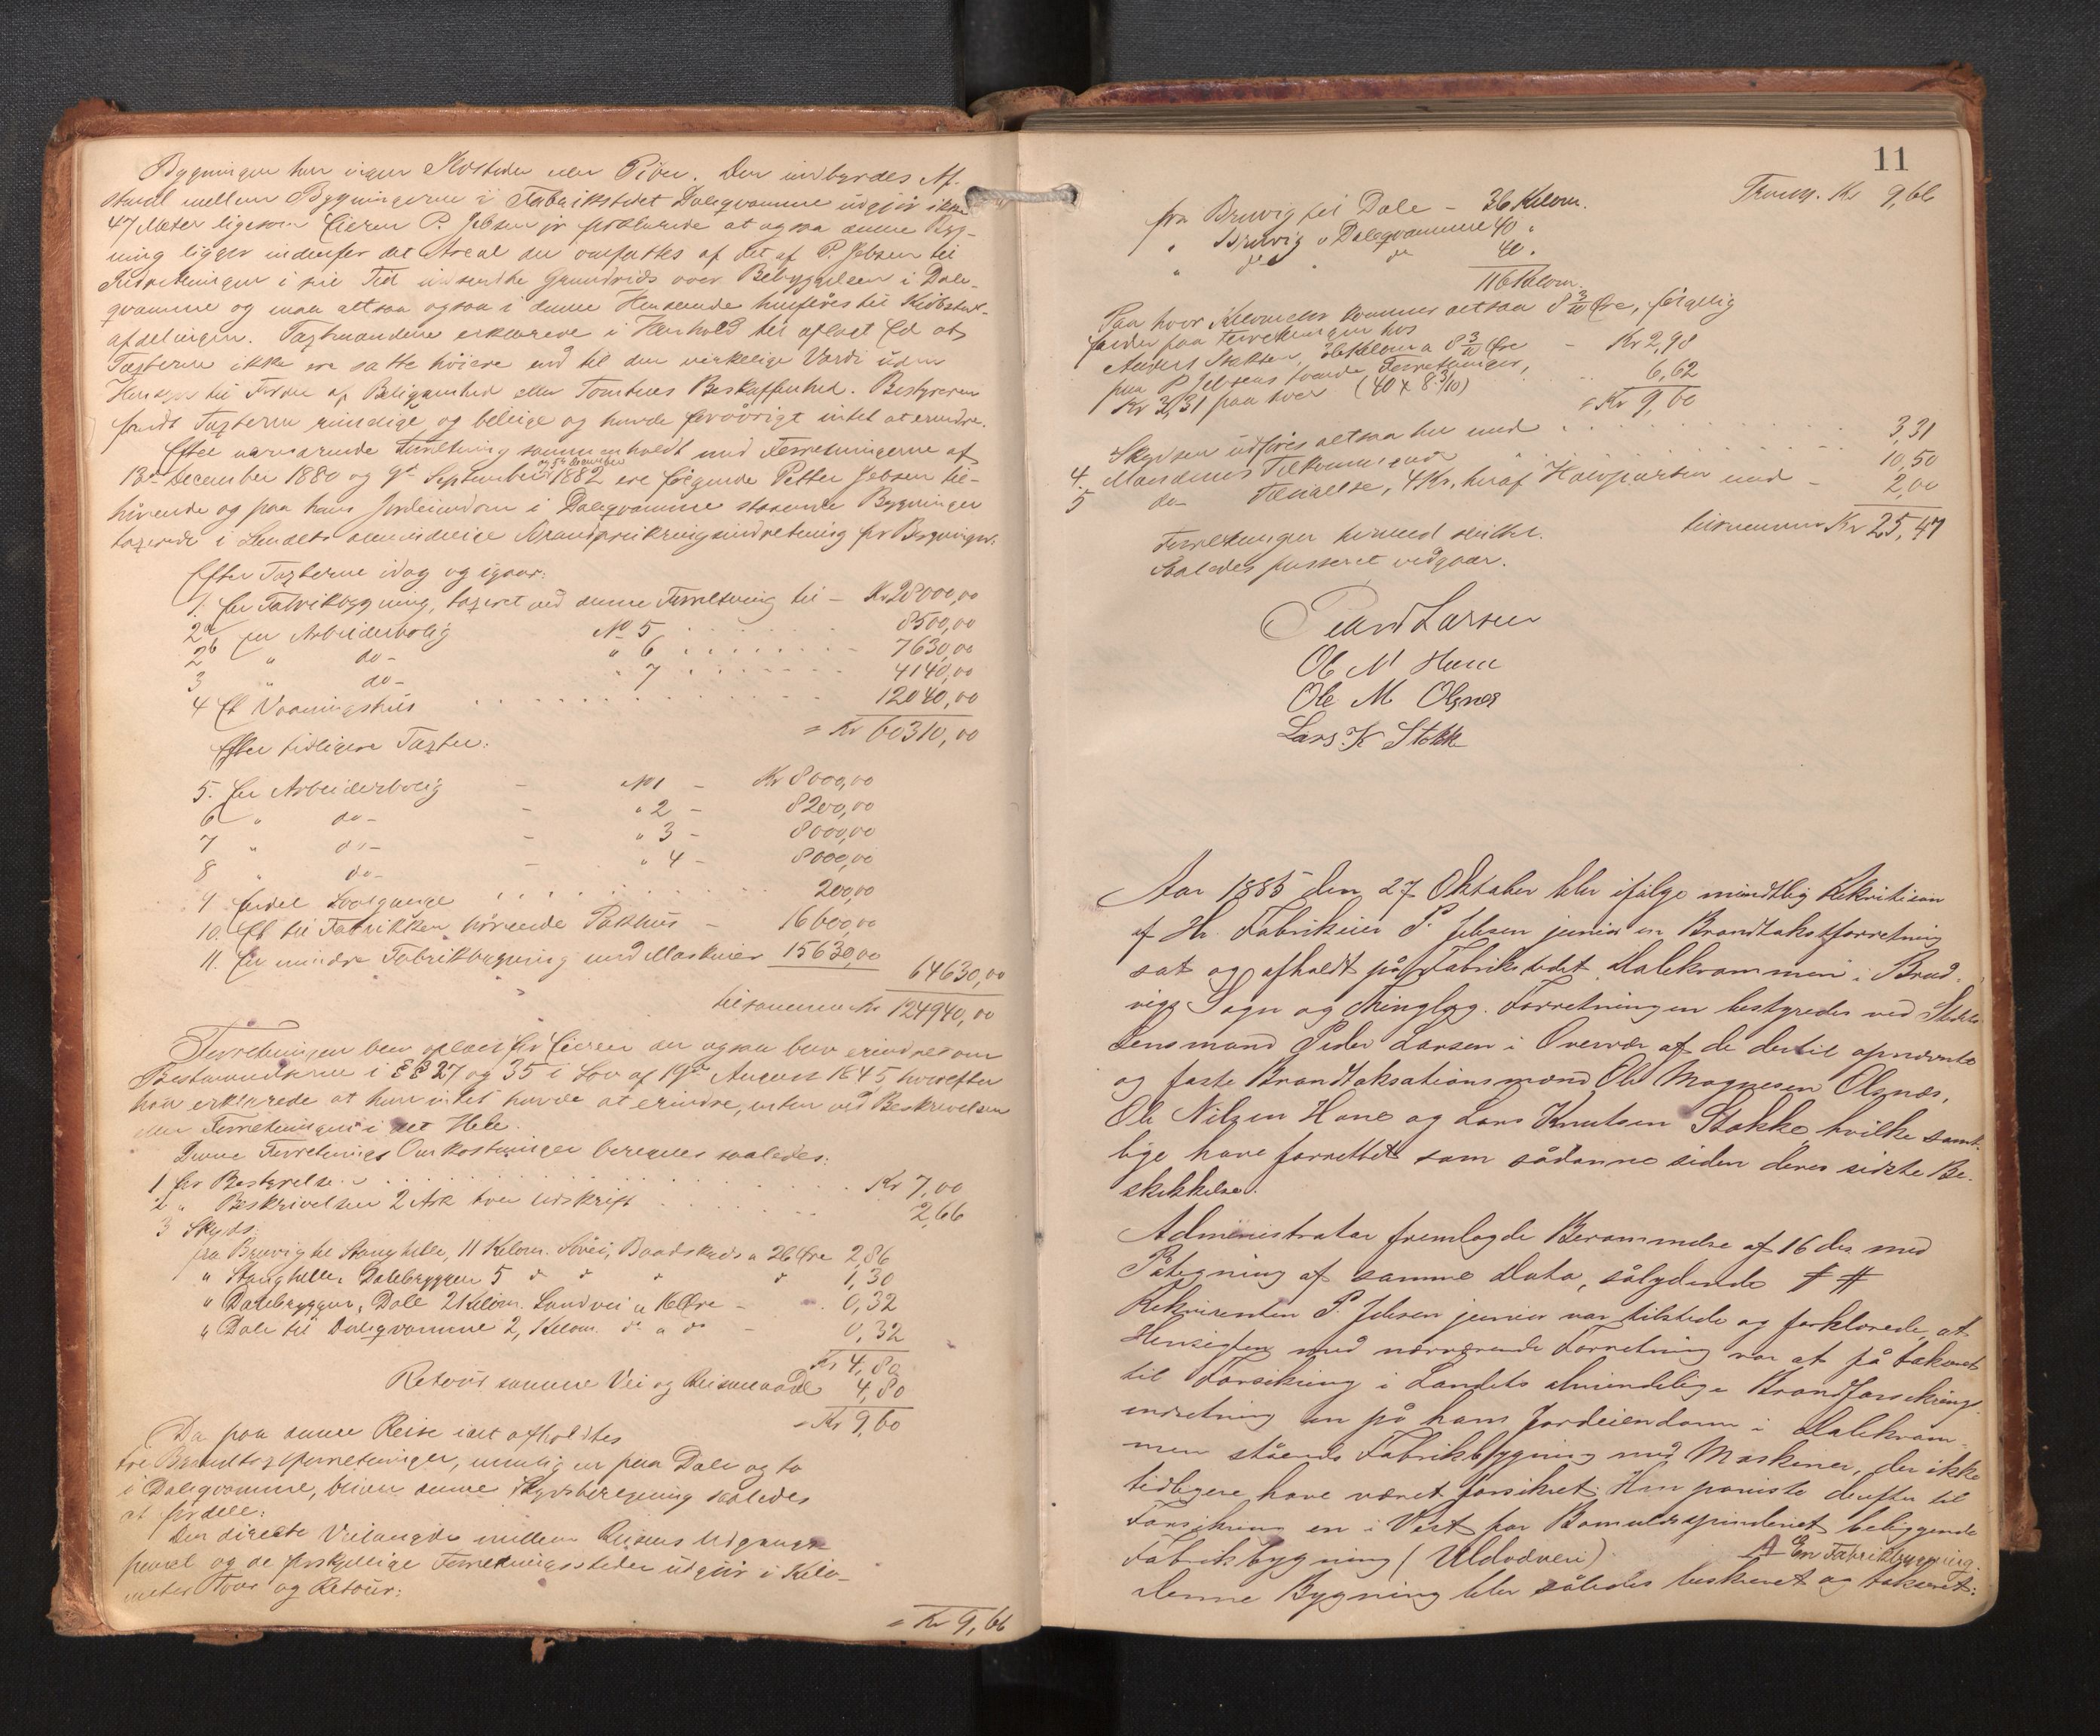 Bygningen har ingen Ildsteder eller Piber. Den indbyrdes Af-
stand mellem Bygningerne i Fabrikstedet Dalegvamme udgjør ikke
47 Meter ligesom Eieren P. Jebsen jr forklarede at ogsaa denne Byg-
ning ligger indenfor det Areal der omfattes af det af P. Jebsen til
Indretningen i sin Tid indsendte Grundrids over Bebyggelsen i Dale-
gvamme og maa altsaa ogsaa i denne Henseende henføres til Kjøbstad-
afdelingen. Taxtmændene erklærede i Henhold til aflagt Ed at
Taxterne ikke ere satte høiere end til den virkelige Værdi uden
Hensyn til Fordel af Beliggenhed eller Tomtens Beskaffenhed. Bestyreren
fandt Taxterne rimelige og billige og havde forøvrigt intet at erindre.
Efter nærværende Forretning sammenholdt med Forretningerne af
13de December 1880 og 9de September og 5te December 1882 ere følgende Petter Jebsen til-
hørende og paa hans Jordeiendom i Dalegvamme staaende Bygninger
taxerede i Landets almindelige Brandforsikringsindretning for Bygninger.
Efter Taxterne idag og igaar:
1. En Fabrikbygning, taxeret ved denne Forretning til – Kr 28000,00
2a En Arbeiderbolig No 5 8500,00
2b " do – " 6 7630,00
3 " do – " 7 4140,00
4 Et Vaaningshus 12040,00
= Kr 60310,00
Efter tidligere Taxter:
5. En Arbeiderbolig – No 1 – Kr 8000,00
6 " do – – " 2 – 8200,00
7 " do – – " 3 – 8000,00
8 " do – – " 4 – 8000,00
9 Endel 200,00
10. Et til Fabrikken hørende Pakhus – 16600,00
11. En mindre Fabrikbygning med Maskiner 15630,00
64630,00
tilsammen Kr 124940,00
Forretningen blev oplæst for Eieren der ogsaa blev erindret om
Bestemmelserne i §§ 27 og 35 i Lov af 19de August 1845 hvorefter
han erklærede at han intet havde at erindre, enten ved Beskrivelsen
eller Forretningen i det Hele.
Denne Forretnings Omkostninger beregnes saaledes:
1 for Bestyrelsen Kr 7,00
2 " Beskrivelsen 2 Ark hver Udskrift 2,66
3 Skyds:
fra Bruvig til Stanghelle, 11 Kilom. Søvei, Baadskyds a 26 Øre 2,86
" Stanghelle, Dalebryggen 5 " " " " 1,30
" Dalebryggen, Dale 2 Kilom. Landvei a 16 Øre – 0,32
" Dale til Dalegvamme 2, Kilom. do a do – 0,32
Kr 4,80
Retour samme Vei og Reisemaade 4,80
= Kr 9,60
Da paa denne Reise idet afholdtes
tre Brandtaxtforretninger, nemlig en paa Dale og to
i Dalegvamme, bliver denne Skydsberegning saaledes
at fordele:
Den directe Veilængde mellem Reisens Udgangs-
punct og de forskjellige Forretningssteder udgjør i Kilo-
meter Tour og Retour:
= Kr 9,66
11
Transp. Kr 9,66
fra Bruvig til Dale – 36 Kilom.
" Bruvig " Dalegvamme 40 "
" do do 40 "
116 Kilom.
Paa hver Kilometer kommer altsaa 8 3/10 Øre, følgelig
falder paa Forretningen hos
Anders Stokken, 36 Kilom a 8 3/10 Øre – Kr 2,98
paa P. Jebsens tvende Forretninger,
Kr 3,31 paa hver (40 x 8 3/10) 6,62
= Kr 9,60
Skydsen udføres altsaa her med 3,31
4. Mændenes Tilkommende 10,50
5 do Tilsigelse, 4 Kr, heraf Halvparten med – 2,00
tilsammen Kr 25,47
Forretningen hermed sluttet.
Saaledes passeret vidgaar.
Peder Larsen
Ole N Hane
Ole M Olsnes
Lars K Stokke
Aar 1885 den 27 Oktober blev ifølge mundtlig Rekvisition
af Hr. Fabrikeier P. Jebsen junior en Brandtakstforretning
sat og afholdt på Fabrikstedet Dalekvammen i Brud-
vigs Sogn og Thinglag. Forretningen bestyredes ved Stedets
Lensmand Peder Larsen i Overvær af de dertil opnævnte
og faste Brandtaksationsmænd Ole Magnesen Olsnæs,
Ole Nilsen Hane og Lars Knutsen Stokke, hvilke samt-
lige have forrettet som sådanne siden deres sidste Be-
skikkelse.
Administrator fremlagde Berammelse af 16 ds med
Påtegning af samme Dato, sålydende # #
Rekvirenten P. Jebsen junior var tilstede og forklarede, at
Hensigten med nærværende Forretning var at få takseret
til Forsikring i Landets almindelige Brandforsikrings-
indretning en på hans Jordeiendom i Dalekvam-
men stående Fabrikbygning med Maskiner, der ikke
tidligere have været forsikret. Han påviste derefter til
Forsikring en i Vest for Bomuldsspinderiet beliggende
Fabriksbygning (Uldvæveri). A En Fabrikbygning.
Denne Bygning blev således beskrevet og takseret: